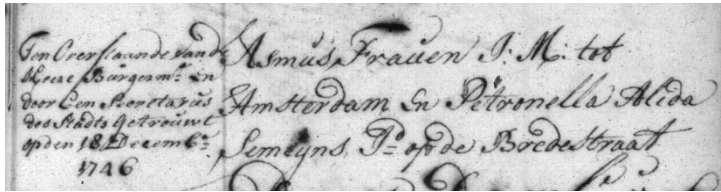 Ten Overstaande van de
Heere Burgerm:n En
door Een Secretarius
des Stadts getrouwt
op den 18 Decemb:r
1746
Asmus Frauen J: M: tot
Amsterdam En Petronella Alida
Semeyns J:D: op de Bredestraat